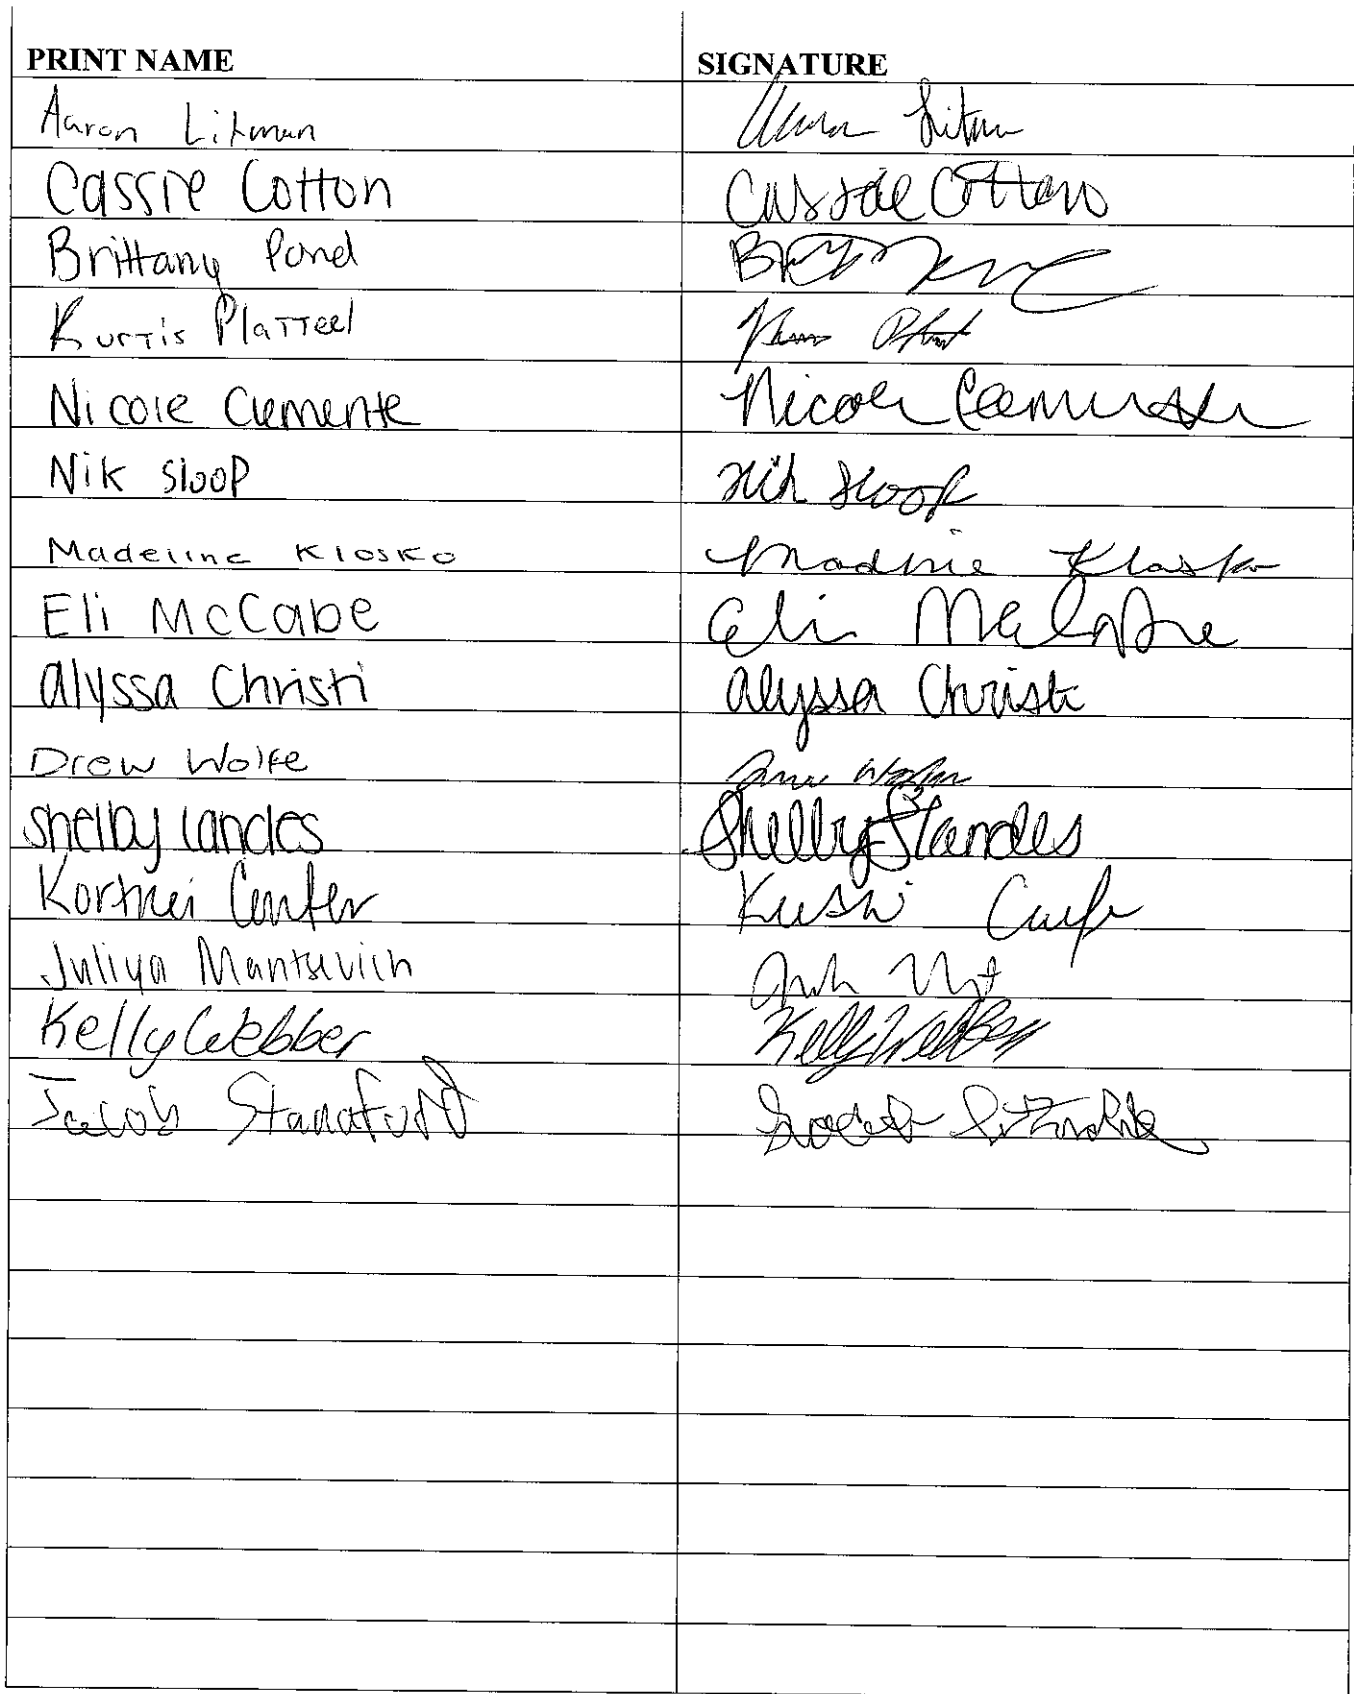 PRINT NAME SIGNATURE
Aaron Litman
Cassie Cotton Cassie Cotton
Brittany Pond
Kurtis Platteel
Nicole Clemente Nicole Clemente
Nik Sloop Nik Sloop
Madeline Klosko Madeline Klosko
Eli McCabe Eli McCabe
Alyssa Christi Alyssa Christi
Drew Wolfe
Shelby Landes Shelby Landes
Kortnei
Juliya Mantsevich
Kelly Webber Kelly Webber
Jacob